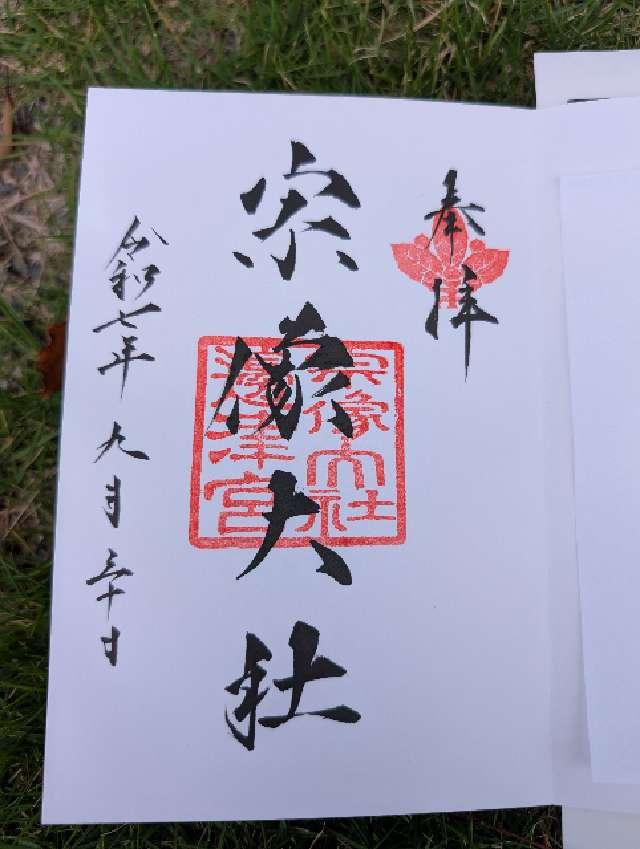 奉拝
宗像大社
宗像大社
邊津宮
令和七年 九月 三十日